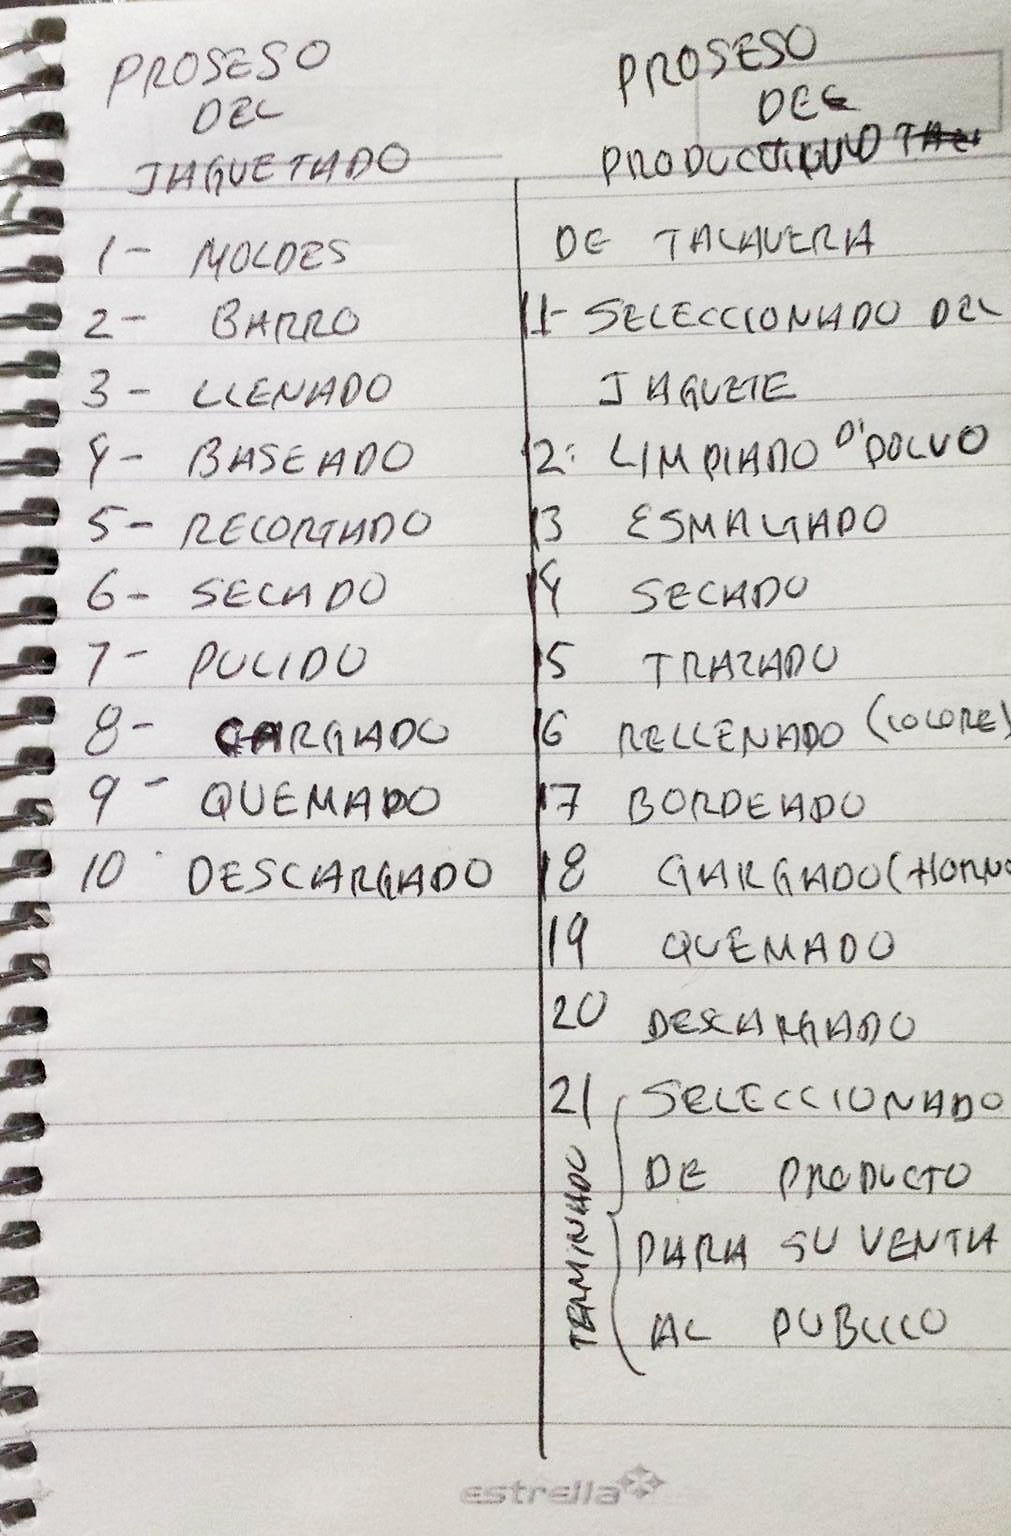 PROSESO
DEL
JAGUETADO
1- MOLDES
2- BARRO
3- LLENADO
4- BASEADO
5- RECORTADO
6- SECADO
7- PULIDO
8- CARGADO
9- QUEMADO
10 DESCARGADO
PROSESO
DEL
DE TALAVERA
11- SELECCIONADO DEL
JAGUETE
12: LIMPIADO D'POLVO
13 ESMALTADO
14 SECADO
15 TRAZADO
16 RELLENADO (COLORE)
17 BORDEADO
18 GARGADO (HORNO
19 QUEMADO
20 DESCARGADO
21 SELECCIONADO
DE PRODUCTO
TERMINADO
PARA SU VENTA
AL PUBLICO
estrella